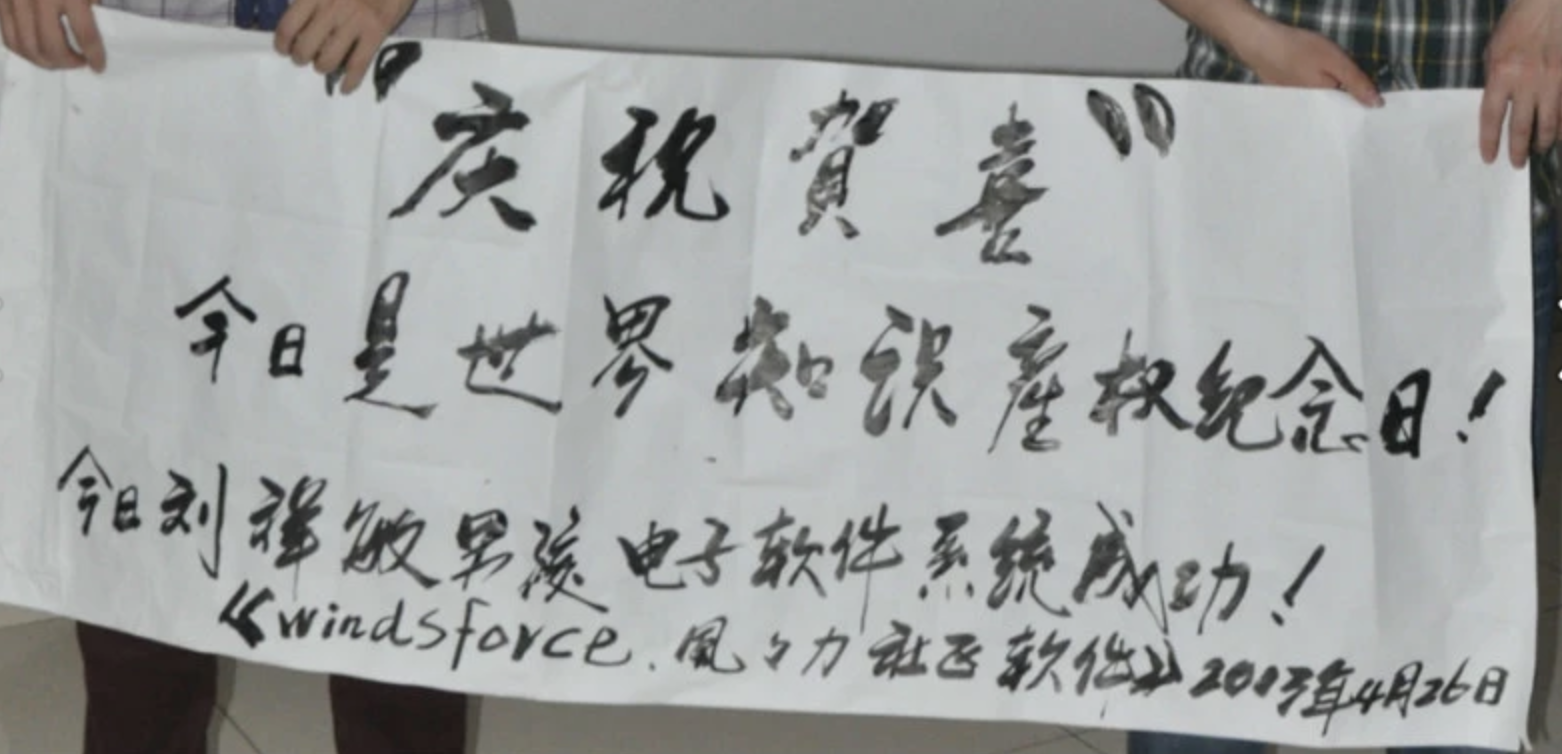 “庆祝賀喜”
今日是世界知识产权纪念日！
今日刘祥敏男孩电子软件系统成功！
《windsforce.風之力社区软件》2013年4月26日